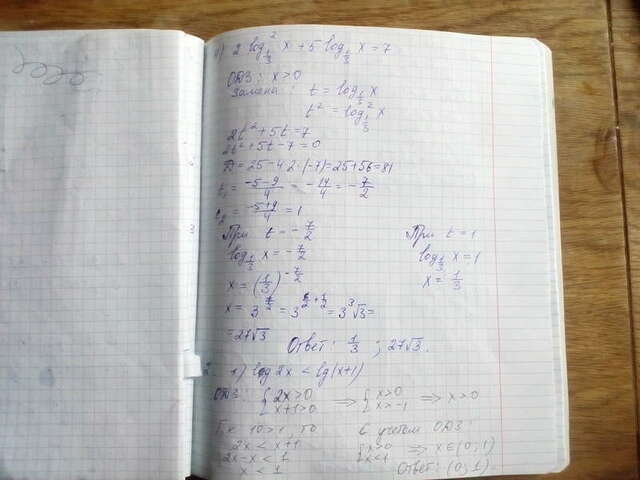 2 log²_{1/3} x + 5 log_{1/3} x = 7
ОДЗ: x > 0
Замена: t = log_{1/3} x
t² = log²_{1/3} x
2t² + 5t = 7
2t² + 5t - 7 = 0
D = 25 - 4·2·(-7) = 25 + 56 = 81
t₁ = (-5-9)/4 = -14/4 = -7/2
t₂ = (-5+9)/4 = 1
При t = -7/2
log_{1/3} x = -7/2
x = (1/3)^{-7/2}
x = 3^{7/2} =
= 27√3
При t = 1
log_{1/3} x = 1
x = 1/3
Ответ: 1/3 ; 27√3.
1) log 2x < lg(x+1)
ОДЗ: { 2x > 0 ⇒ { x > 0 ⇒ x > 0
{ x+1 > 0 { x > -1
Т.к 10 > 1, то
2x < x+1
2x - x < 1
x < 1
С учетом ОДЗ:
{ x > 0 ⇒ x ∈ (0; 1)
{ x < 1
Ответ: (0; 1).